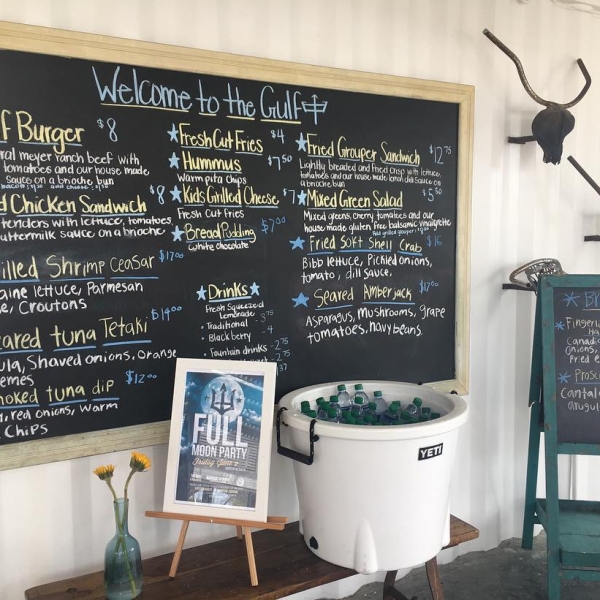 Welcome to the Gulf
f Burger $8
ral meyer ranch beef with
tomatoes and our house made
sauce on a brioche bun
d Chicken Sandwich $8
tenders with lettuce, tomatoes
uttermilk sauce on a brioche
illed Shrimp Ceasar $17.00
aine lettuce, Parmesan
e, Croutons
eared tuna Tetaki $14.00
ula, Shaved onions, Orange
emes
moked tuna dip $12.00
d, red onions, warm
CHIPS
Fresh Cut Fries $4
Hummus $7.50
Warm pita chips
Kids Grilled Cheese $7
Fresh Cut Fries
Bread Pudding $7.00
white chocolate
Drinks
Fresh Squeezed
Lemonade
Traditional 3.75
Blackberry 4
Fountain drinks 2.75
Fried Grouper Sandwich $12.75
Lightly breaded and fried crisp with lettuce,
tomatoes and our house made lemon dill sauce on
a brioche bun
Mixed Green Salad $5.50
Mixed greens, cherry tomatoes and our
house made gluten free balsamic vinaigrette
Fried Soft Shell Crab $16
Bibb lettuce, Pickled onions,
tomato, dill sauce.
Seared Amberjack $17.00
Asparagus, mushrooms, grape
tomatoes, navy beans.
FULL
MOON PARTY
YETI
Br
Fingerli
Canadi
onions,
Fried e
Prosc
Cantal
arugul